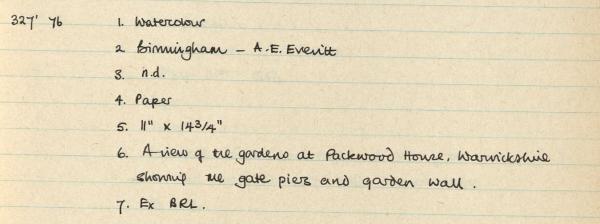 327' 76 1. Watercolour
2. Birmingham - A.E. Everitt
3. n.d.
4. Paper
5. 11" x 14 3/4"
6. A view of the gardens at Packwood House, Warwickshire
showing the gate piers and garden wall.
7. Ex BRL.